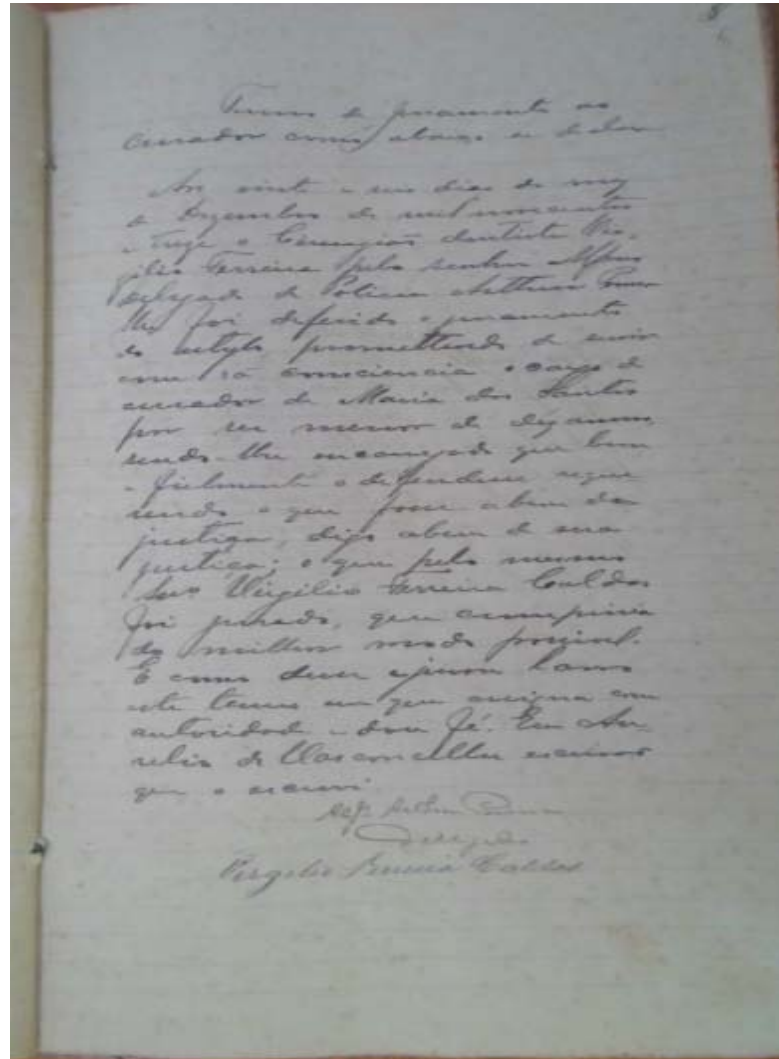 Termo de juramento ao
curador como abaixo se declara
Aos vinte e um dias do mez
de Dezembro de mil novecentos
e treze o Cirurgião dentista Vir-
gilio Ferreira pelo senhor Alferes
Delegado de Policia Arthur
lhe foi deferido o juramento
do estylo promettendo de servir
com sã consciencia o cargo de
curador de Maria dos Santos
por ser menor de
sendo-lhe encarregado que bem
e fielmente o defendesse reque
rendo o que fosse abem da
justiça, digo abem de sua
justiça; o que pelo mesmo
Snr Virgilio Ferreira Caldas
foi jurado, que cumpriria
do milhor modo possivel.
E como disse e jurou lavro
este termo em que assigna com
autoridade e dou fé. Eu Au-
relio de Vasconcellos escrivão
que o escrevi.
Alfs Arthur
Delegado
Virgilio Ferreira Caldas